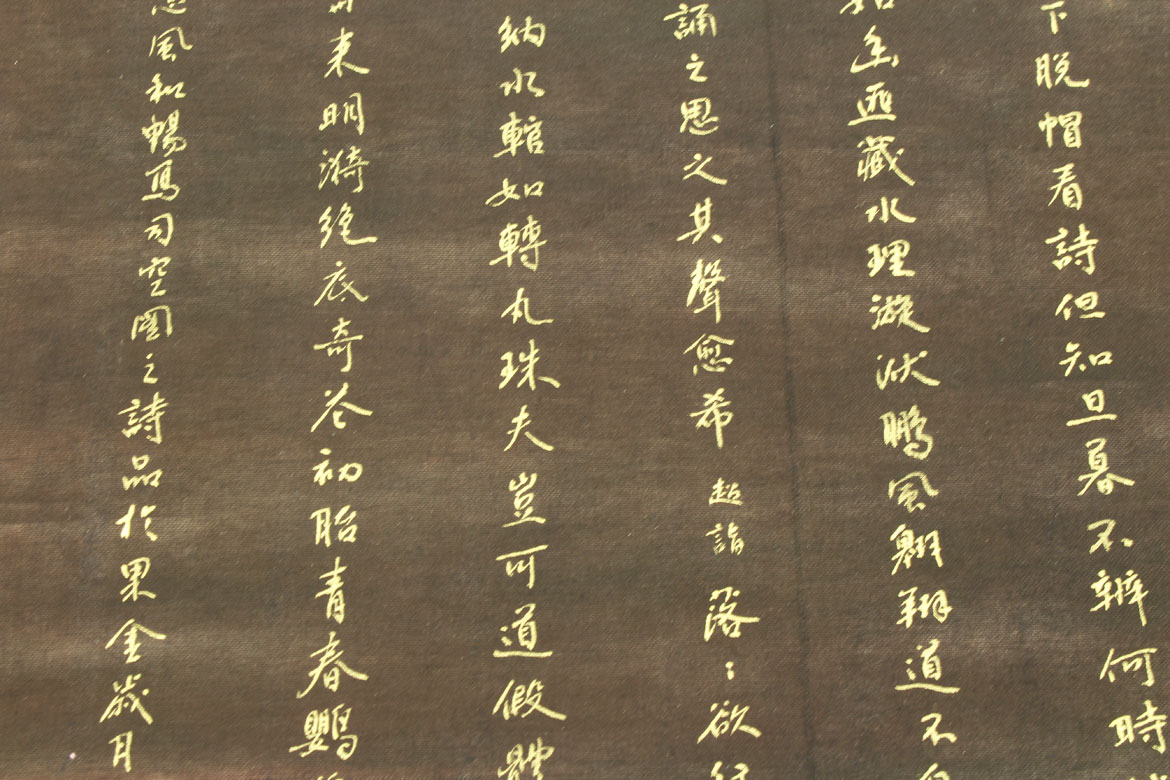 下脱帽看詩但知旦暮不辨何時
如幽匪藏水理漩洑鵬風翱翔道不
誦之思之其聲愈希超詣落落欲
納水輨如轉丸珠夫豈可道假體
來明漪絕底奇花初胎青春鸚
風和暢寫司空圖之詩品於果金歲月